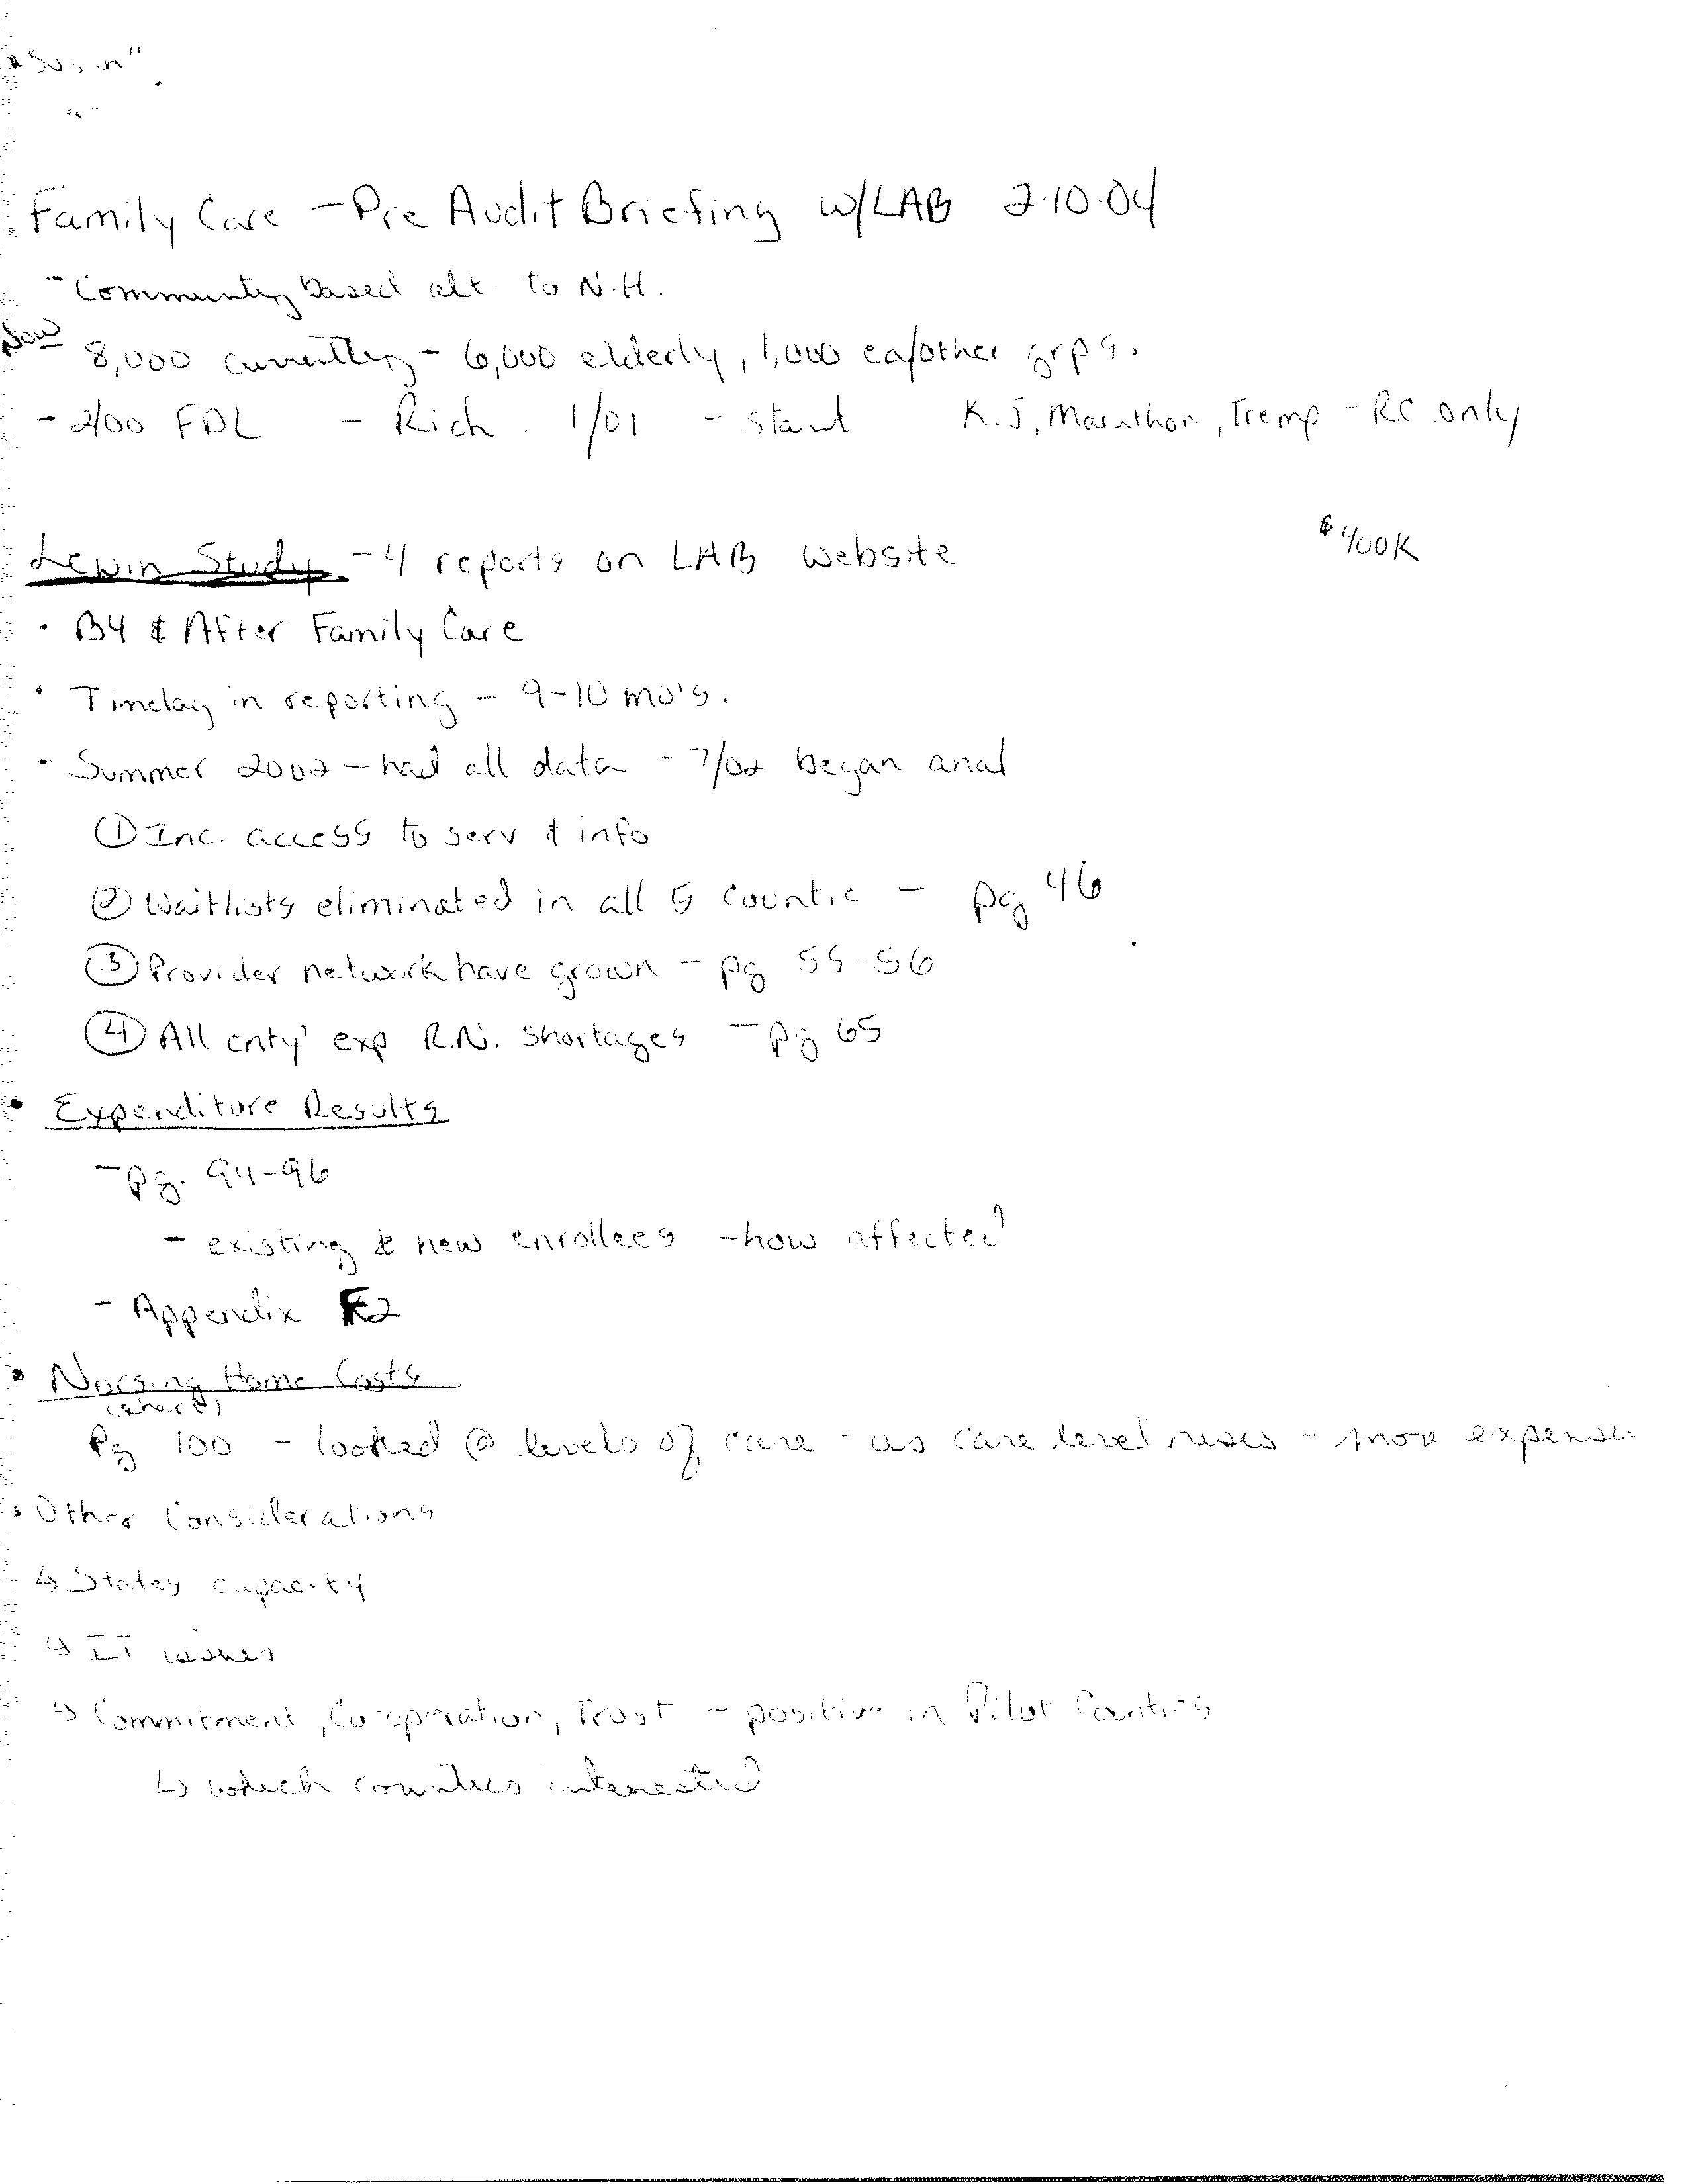 Family Care - Pre Audit Briefing w/LAB 2-10-04
- Community based alt. to N.H.
Now 8,000 currently - 6,000 elderly, 1,000 ea/other grps.
- 2/00 FDL - Rich. 1/01 - start K. J, Marathon, Tremp - RC only
Lewin Study - 4 reports on LAB website $400K
• B4 & After Family Care
• Timelag in reporting - 9-10 mo's.
• Summer 2002 - had all data - 7/02 began anal
① Inc. access to serv & info
② Waitlists eliminated in all 5 countie - pg 46
③ Provider network have grown - pg 55-56
④ All cnty' exp R.N. shortages - pg 65
• Expenditure Results
- pg. 94-96
- existing & new enrollees - how affected?
- Appendix F2
• Nursing Home Costs
(chart)
Pg 100 - looked @ levels of care - as care level rises - more expense
• Other Considerations
↳ States capacity
↳ IT issues
↳ Commitment, Co-operation, Trust - positive in Pilot Counties
↳ which counties interested